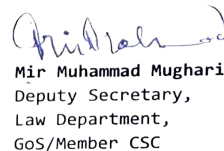 Mir Muhammad Mughari
Deputy Secretary,
Law Department,
GoS/Member CSC